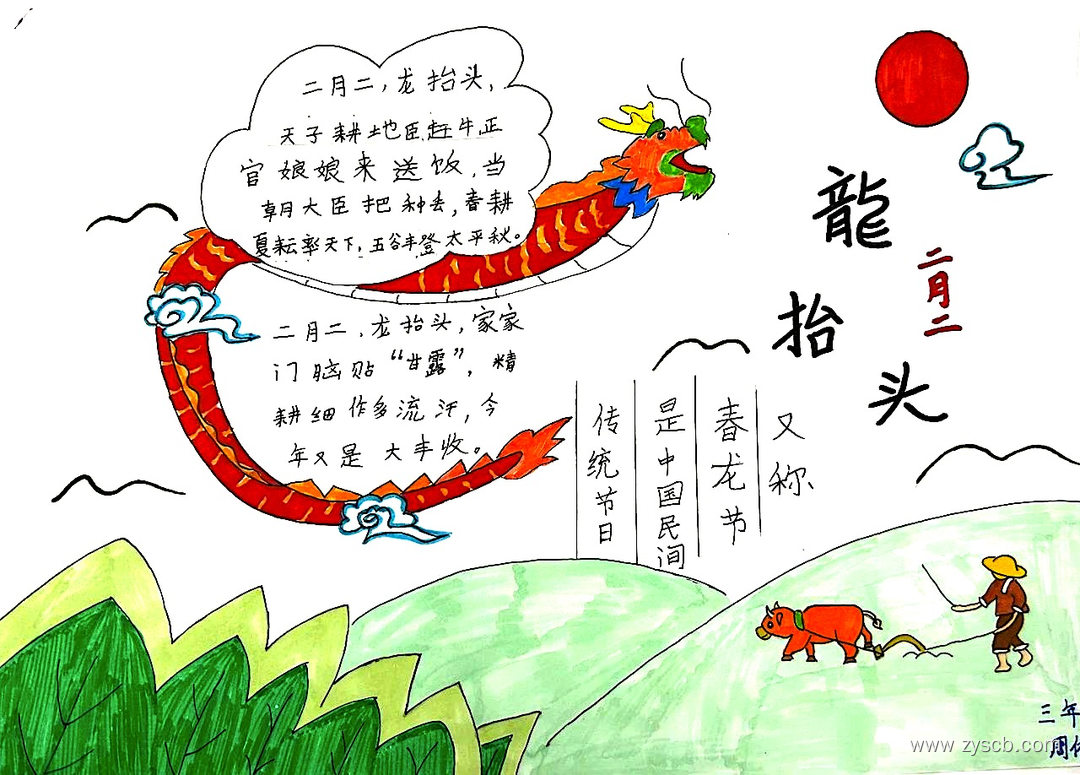 二月二，龙抬头，
天子耕地臣赶牛，正
官娘娘来送饭，当
朝大臣把种丢，春耕
夏耘率天下，五谷丰登太平秋。
二月二，龙抬头，家家
门脑贴“甘露”，精
耕细作多流汗，今
年又是大丰收。
龍抬头
二月二
又称
春龙节
是中国民间
传统节日
三年
周
www.zyscb.com